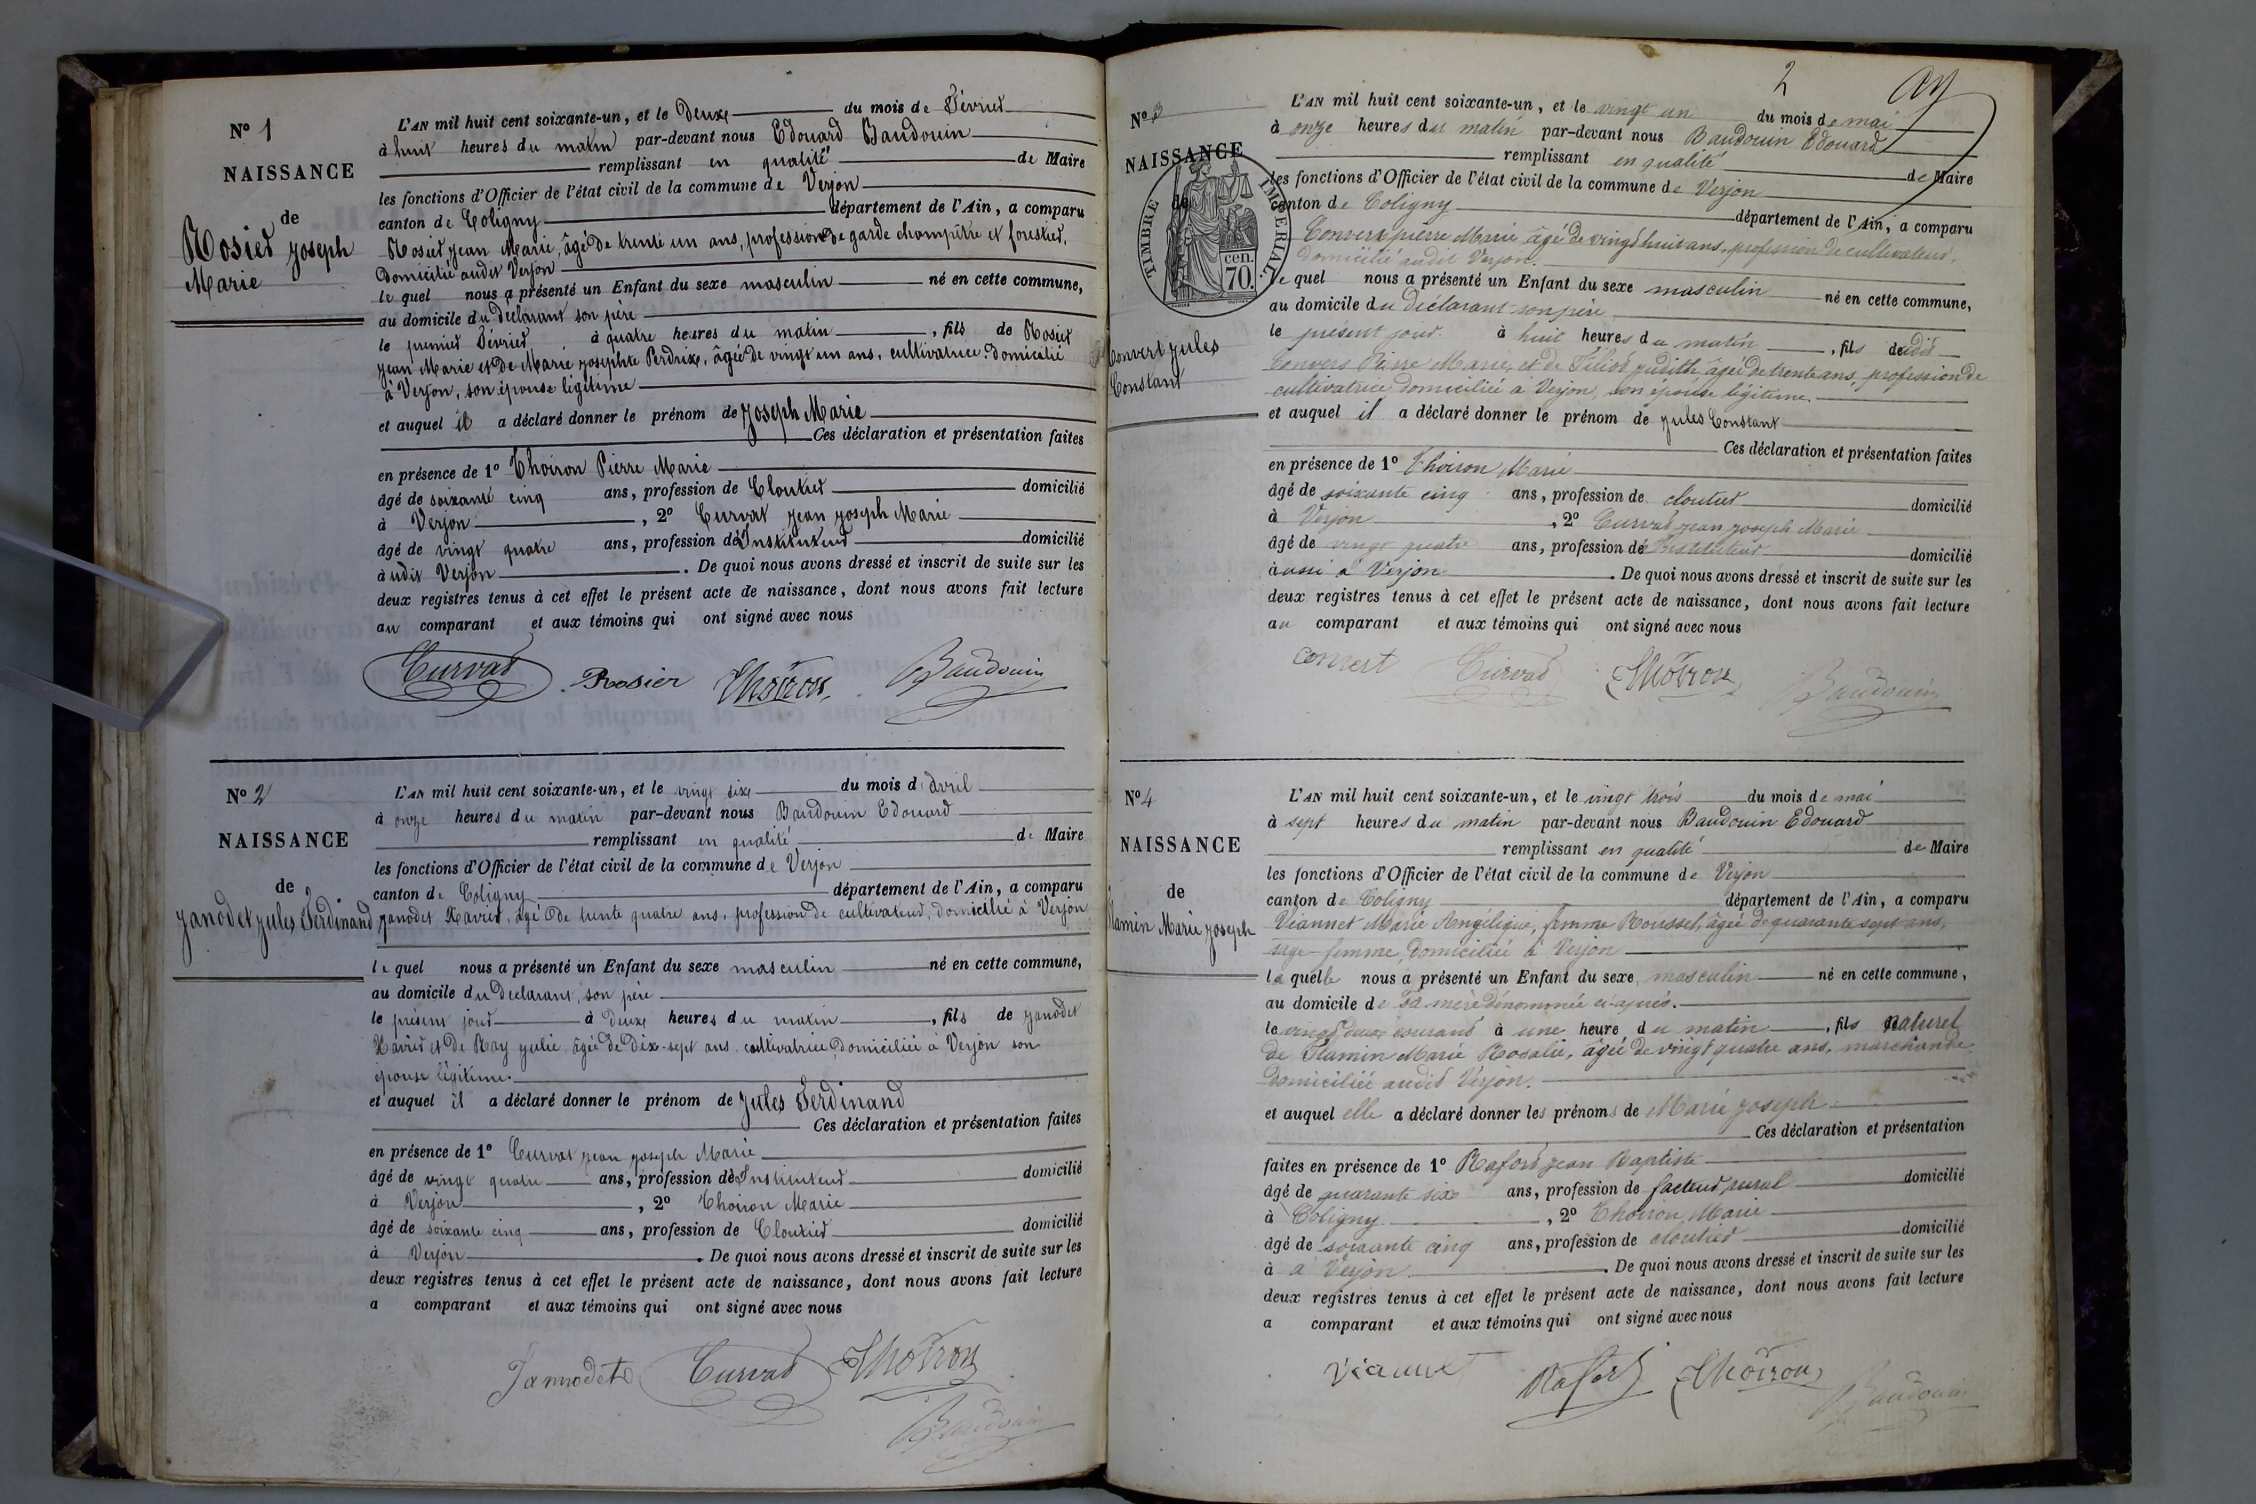 Nº 1
NAISSANCE
de
Rosier Joseph
Marie
L'AN mil huit cent soixante-un, et le Deux du mois de Février
à huit heures du matin par-devant nous Edouard Baudouin
remplissant en qualité de Maire
les fonctions d'Officier de l'état civil de la commune de Verjon
canton de Coligny département de l'Ain, a comparu
Rosier Jean Marie, âgé de trente un ans, profession de garde champêtre et forestier,
domicilié audit Verjon
le quel nous a présenté un Enfant du sexe masculin né en cette commune,
au domicile du déclarant son père
le premier Février à quatre heures du matin, fils de Rosier
Jean Marie et de Marie Josephte Perdrix, âgée de vingt un ans, cultivatrice domicilié
à Verjon, son épouse légitime
et auquel il a déclaré donner le prénom de Joseph Marie
Ces déclaration et présentation faites
en présence de 1º Thoiron Pierre Marie
âgé de soixante cinq ans, profession de Cloutier domicilié
à Verjon, 2º Curvat Jean Joseph Marie
âgé de vingt quatre ans, profession de Instituteur domicilié
à udit Verjon. De quoi nous avons dressé et inscrit de suite sur les
deux registres tenus à cet effet le présent acte de naissance, dont nous avons fait lecture
au comparant et aux témoins qui ont signé avec nous
Curvat Rosier Thoiron Baudouin
Nº 2
NAISSANCE
de
Janodet Jules Ferdinand
L'AN mil huit cent soixante-un, et le vingt six du mois d'avril
à onze heures du matin par-devant nous Baudouin Edouard
remplissant en qualité de Maire
les fonctions d'Officier de l'état civil de la commune de Verjon
canton de Coligny département de l'Ain, a comparu
Janodet Xavier, âgé de trente quatre ans, profession de cultivateur, domicilié à Verjon
le quel nous a présenté un Enfant du sexe masculin né en cette commune,
au domicile du déclarant, son père
le présent jour à deux heures du matin, fils de Janodet
Xavier et de Ray Julie, âgée de dix-sept ans cultivatrice domiciliée à Verjon son
épouse légitime.
et auquel il a déclaré donner le prénom de Jules Ferdinand
Ces déclaration et présentation faites
en présence de 1º Curvat Jean Joseph Marie
âgé de vingt quatre ans, profession de Instituteur domicilié
à Verjon, 2º Thoiron Marie
âgé de soixante cinq ans, profession de Cloutier domicilié
à Verjon. De quoi nous avons dressé et inscrit de suite sur les
deux registres tenus à cet effet le présent acte de naissance, dont nous avons fait lecture
a comparant et aux témoins qui ont signé avec nous
Jannodet Curvat Thoiron
Baudouin
2
Nº 3
NAISSANCE
de
TIMBRE IMPERIAL
70 cen.
Convert Jules
Constant
L'AN mil huit cent soixante-un, et le vingt un du mois de mai
à onze heures du matin par-devant nous Baudouin Edouard
remplissant en qualité de Maire
les fonctions d'Officier de l'état civil de la commune de Verjon
canton de Coligny département de l'Ain, a comparu
Convert pierre Marie âgé de vingt huit ans, profession de cultivateur,
domicilié audit Verjon.
le quel nous a présenté un Enfant du sexe masculin né en cette commune,
au domicile du déclarant son père
le présent jour à huit heures du matin, fils dudit
Convers Pierre Marie, et de Judith âgée de trente ans, profession de
cultivatrice domiciliée à Verjon, son épouse légitime
et auquel il a déclaré donner le prénom de Jules Constant
Ces déclaration et présentation faites
en présence de 1º Thoiron Marie
âgé de soixante cinq ans, profession de cloutier domicilié
à Verjon, 2º Curvat Jean Joseph Marie
âgé de vingt quatre ans, profession de Instituteur domicilié
aussi à Verjon. De quoi nous avons dressé et inscrit de suite sur les
deux registres tenus à cet effet le présent acte de naissance, dont nous avons fait lecture
au comparant et aux témoins qui ont signé avec nous
convert Curvat Thoiron Baudouin
Nº 4
NAISSANCE
de
Flamin Marie Joseph
L'AN mil huit cent soixante-un, et le vingt trois du mois de mai
à sept heures du matin par-devant nous Baudouin Edouard
remplissant en qualité de Maire
les fonctions d'Officier de l'état civil de la commune de Verjon
canton de Coligny département de l'Ain, a comparu
Viannet Marie Angélique, femme Rousset, âgée de quarante sept ans,
sage-femme, domiciliée à Verjon
la quelle nous a présenté un Enfant du sexe masculin né en cette commune,
au domicile de sa mère dénommée ci-après.
le vingt deux courant à une heure du matin, fils naturel
de Flamin Marie Rosalie, âgée de vingt quatre ans, marchande
domiciliée audit Verjon.
et auquel elle a déclaré donner les prénoms de Marie Joseph
Ces déclaration et présentation
faites en présence de 1º Rafort Jean Baptiste
âgé de quarante six ans, profession de facteur rural domicilié
à Coligny, 2º Thoiron Marie
âgé de soixante cinq ans, profession de cloutier domicilié
à a Verjon. De quoi nous avons dressé et inscrit de suite sur les
deux registres tenus à cet effet le présent acte de naissance, dont nous avons fait lecture
a comparant et aux témoins qui ont signé avec nous
Viannet Rafort Thoiron Baudouin